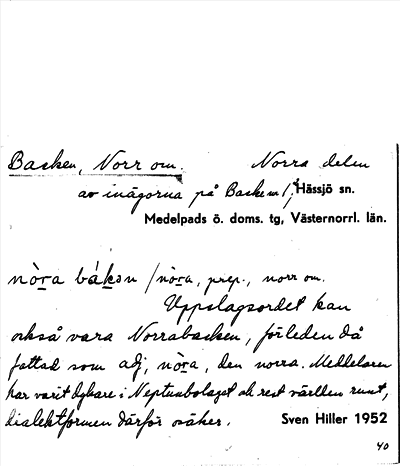 Backen, Norr om. Norra delen
av inägorna på Backen 1; Hässjö sn.
Medelpads ö. doms. tg, Västernorrl. län.
nòra bákən /nòra, prep., norr om.
Uppslagsordet kan
också vara Norrabacken, förleden då
fattad som adj, nòra, den norra. Meddelaren
har varit dykare i Neptunbolaget och rest världen runt,
dialektformen därför osäker. Sven Hiller 1952
40